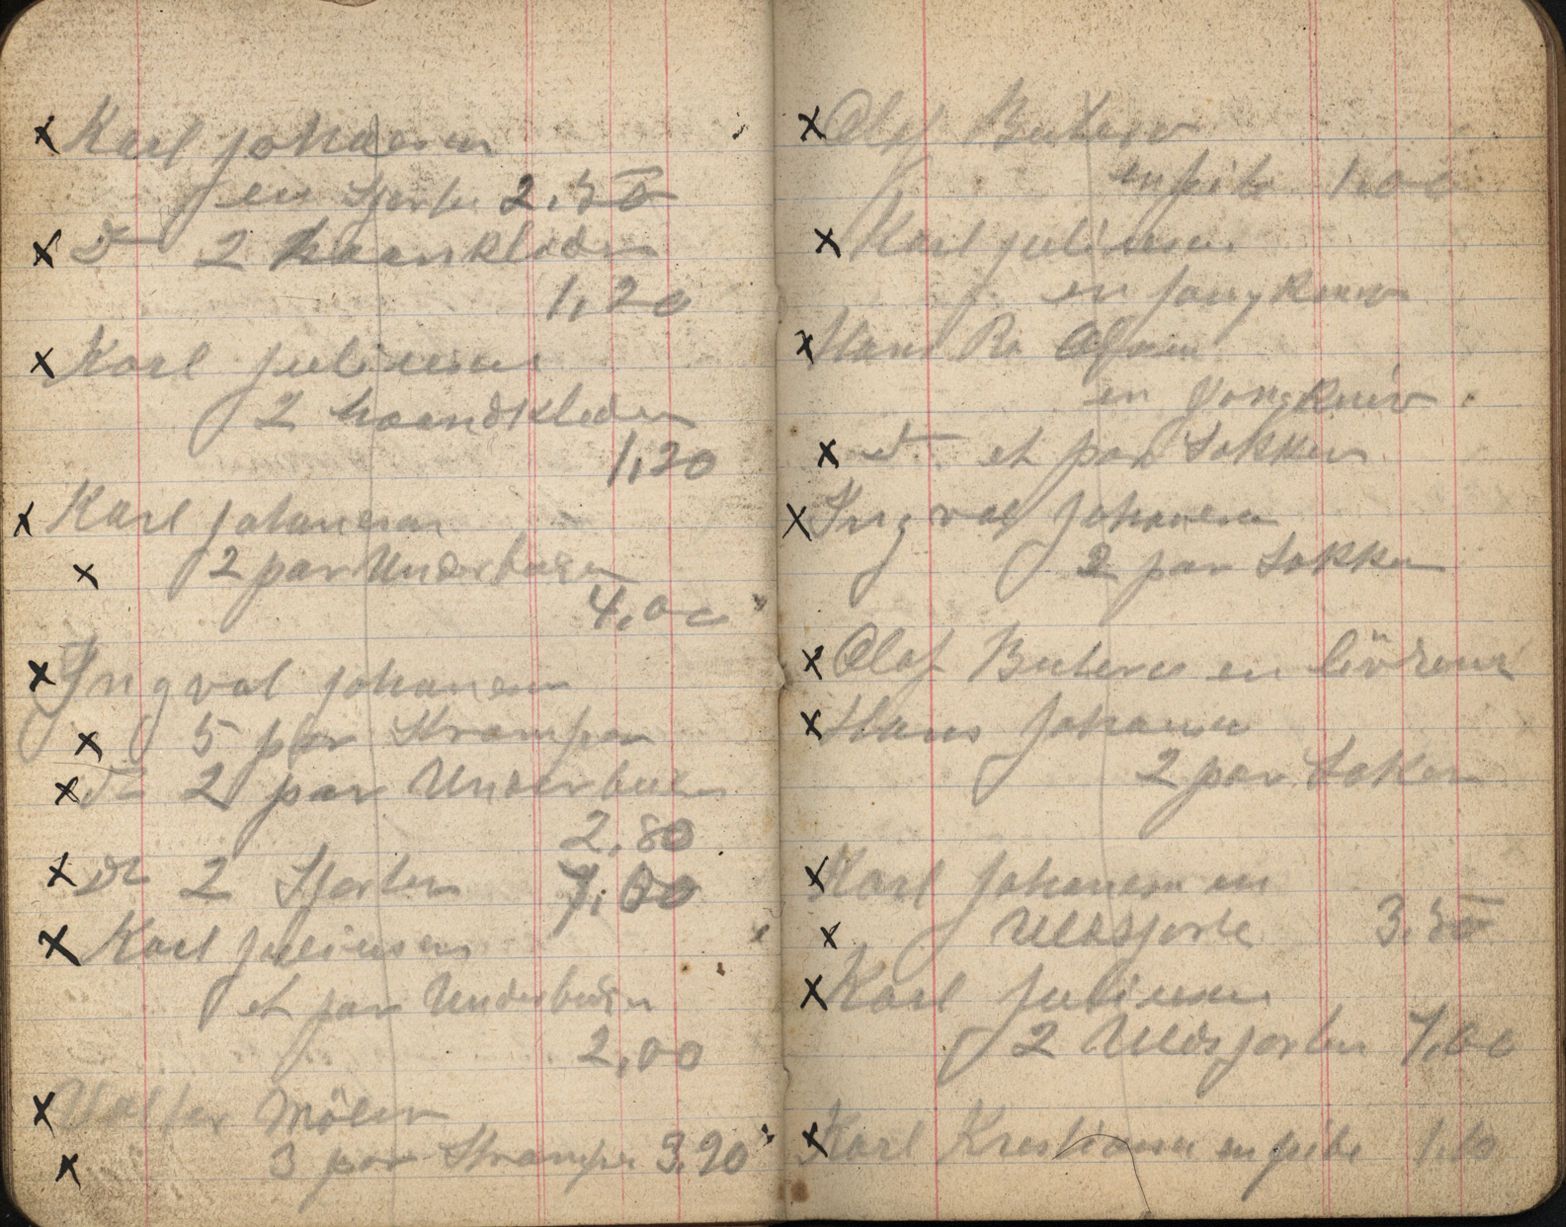 x Karl Johansen
en Sjorte 2.50
x Do 2 haankleder
1,20
x Karl Juliusen
2 haandkleder
1,20
x Karl Johansen
x 2 par Underbuser
4,00
x Ingval Johansen
x 5 par Strømper
x Do 2 par Underbukser
2.80
x Do 2 Sjorter 7,00
x Karl Juliusen
et par Underbuser
2,00
x Valter Möler
x 3 par Strømper 3.90
x Olaf
en pibe 1.00
x Karl Juliusen
en
x Hans
en
x Do et par Sokker
x Ingval Johansen
2 par Sokker
x Olaf en
x Hans Johansen
2 par Soker
x Karl Johansen en
x Uldsjorte 3.50
x Karl Juliusen
2 Uldsjorter 7,00
x Karl Krestiansen en pibe 1.10